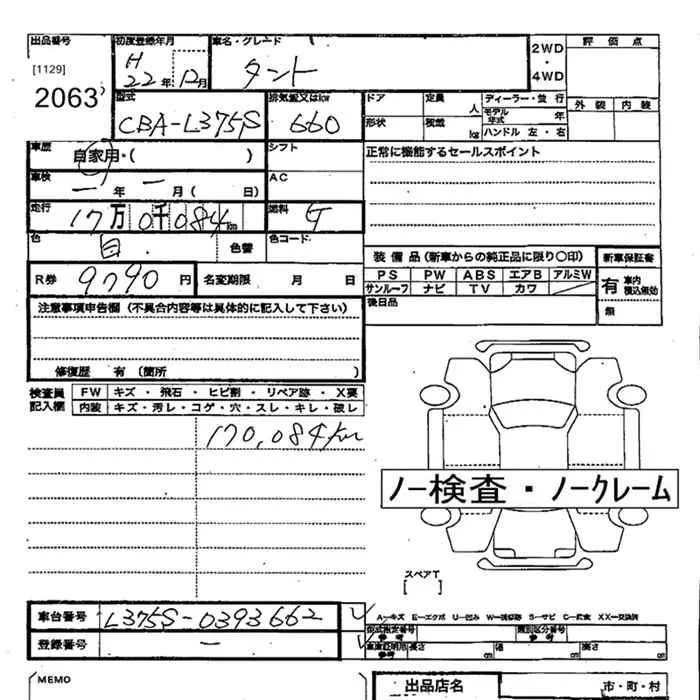 出品番号 初度登録年月 車名・グレード 2WD・4WD 評価点
[1129] H22年12月 タント
2063 外装 内装
型式 排気量又はtor ドア 定員 人 ディーラー・並行
CBA-L375S 660 モデル年式 年
形状 積載 kg ハンドル 左・右
車歴 自家用・( ) シフト 正常に機能するセールスポイント
車検 ー年ー月(日) AC
走行 17万0千084km 燃料 G
色 白 色替 色コード 装備品(新車からの純正品に限り〇印) 新車保証書
PS PW ABS エアB アルミW 有 車内積込無効
R券 9790円 名変期限 月 日 サンルーフ ナビ TV カワ
後日品 無
注意事項申告欄(不具合内容等は具体的に記入して下さい)
修復歴 有(箇所 )
検査員記入欄 FW キズ・飛石・ヒビ割・リペア跡・X要
内装 キズ・汚レ・コゲ・穴・スレ・キレ・破レ
170,084km
ノー検査・ノークレーム
スペアT
[ ]
車台番号 L375S-0393662 レ A-キズ E-エクボ U-凹ミ W-補修跡 S-サビ C-腐食 XX-交換済
型式指定番号 参考 類別区分番号 参考
登録番号 ー レ 車庫証明用参考 長さ cm 幅 cm 高さ cm
MEMO 出品店名 市・町・村